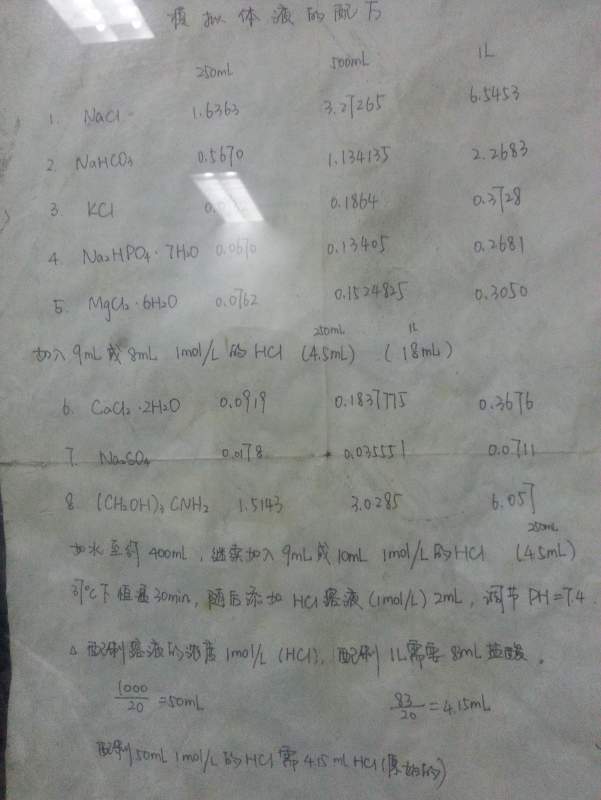 模拟体液的配方
250mL 500mL 1L
1. NaCl 1.6363 3.27265 6.5453
2. NaHCO3 0.5670 1.134135 2.2683
3. KCl 0.1864 0.3728
4. Na2HPO4·7H2O 0.0670 0.13405 0.2681
5. MgCl2·6H2O 0.0762 0.1524825 0.3050
250mL 1L
加入9mL或8mL 1mol/L的HCl (4.5mL) (18mL)
6. CaCl2·2H2O 0.0919 0.1837775 0.3676
7. Na2SO4 0.0178 0.035551 0.0711
8. (CH2OH)3CNH2 1.5143 3.0285 6.057
250mL
加水至约400mL,继续加入9mL或10mL 1mol/L的HCl (4.5mL)
37℃下恒温30min,随后添加HCl溶液(1mol/L)2mL,调节PH=7.4
△配制溶液的浓度1mol/L(HCl),配制1L需要83mL盐酸。
1000/20=50mL 83/20=4.15mL
配制50mL 1mol/L的HCl需4.15mL HCl(原始的)